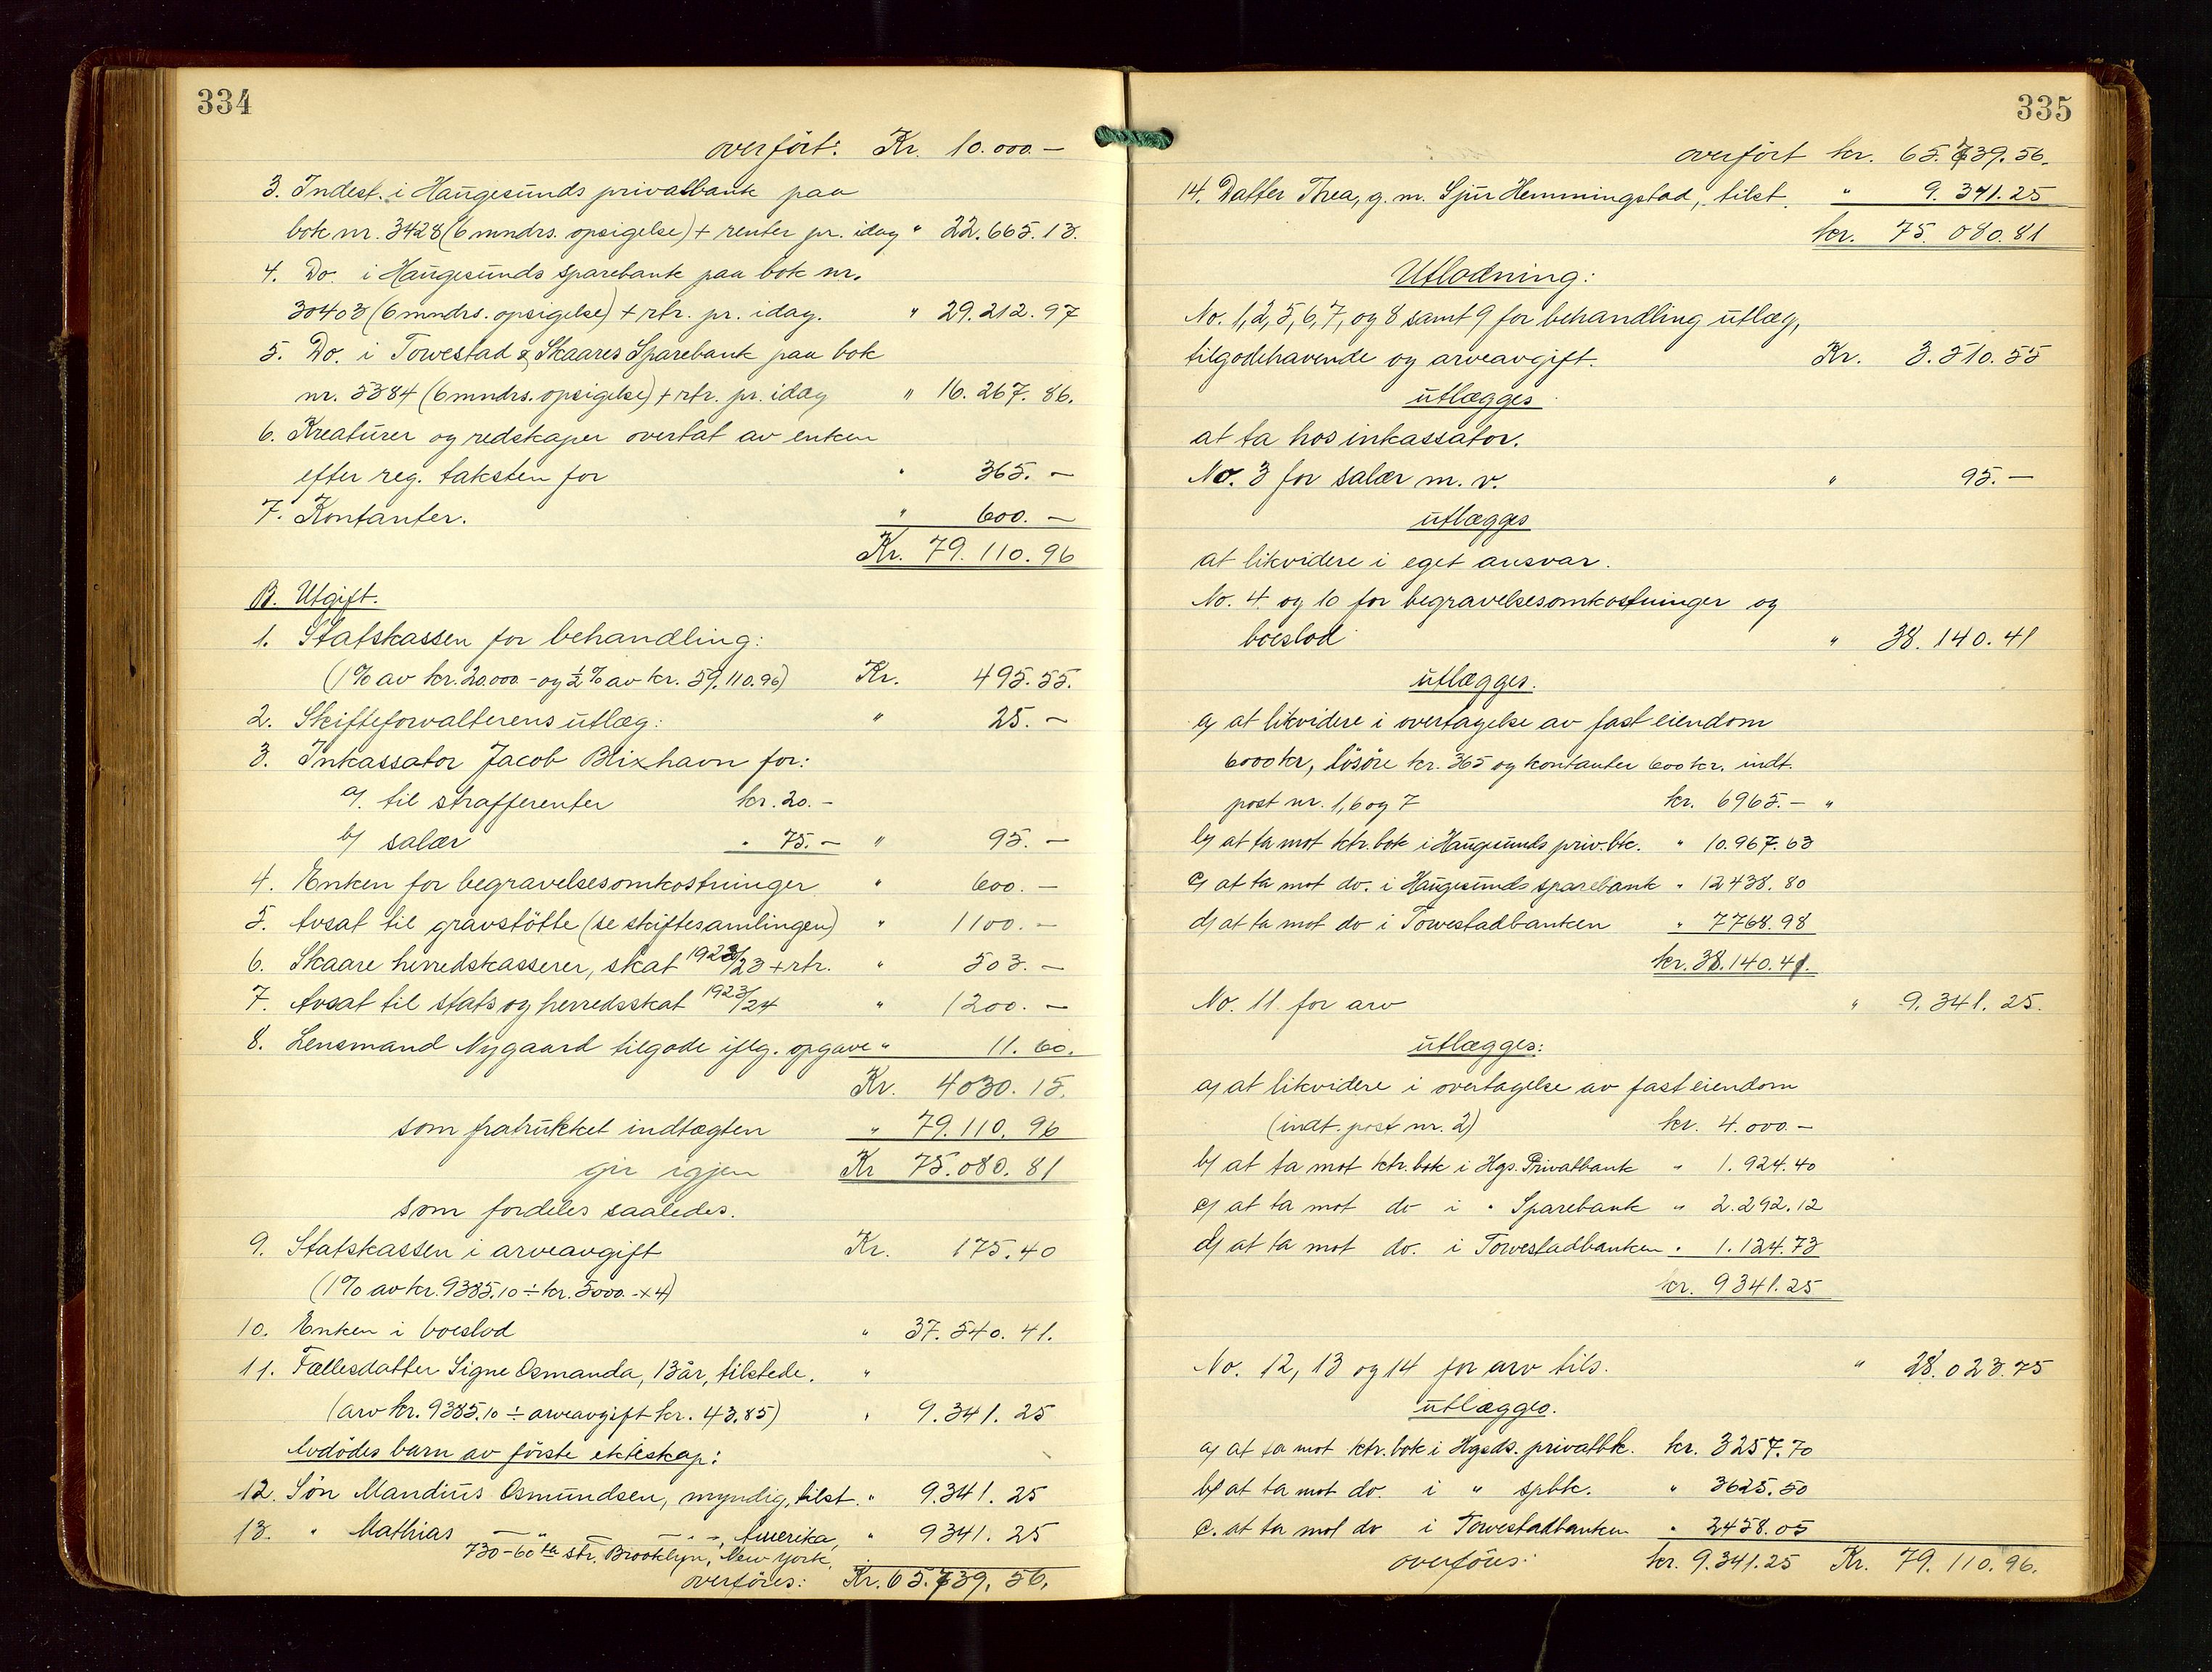 334
overfört: Kr. 10.000.—
3. Indest. i Haugesunds privatbank paa
bok nr. 3428 (6 mndrs. opsigelse) + renter pr. idag " 22.665.13.
4. Do. i Haugesunds sparebank paa bok nr.
30403 (6 mndrs. opsigelse) + rtr. pr. idag. " 29.212.97
5. Do. i Torvestad & Skaares Sparebank paa bok
nr. 5384 (6 mndrs. opsigelse) + rtr. pr. idag " 16.267.86.
6. Kreaturer og redskaper overtat av enken
efter reg. taksten for " 365.—
7. Kontanter. " 600.—
Kr. 79.110.96
B. Utgift.
1. Statskassen for behandling:
(1% av kr. 20.000.- og ½% av kr. 59.110.96) Kr. 495.55.
2. Skifteforvalterens utlæg: " 25.—
3. Inkassator Jacob Blixhavn for:
a/. til strafferenter kr. 20.—
b/ salær " 75.— " 95.—
4. Enken for begravelsesomkostninger " 600.—
5. Avsat til gravstötte (se skiftesamlingen) " 1100.—
6. Skaare herredskasserer, skat 1922/23 + rtr. " 503.—
7. Avsat til stats og herredsskat 1923/24 " 1200.—
8. Lensmand Nygaard tilgode iflg. opgave " 11.60.
Kr. 4030.15.
som fratrukket indtægten " 79.110.96
gir igjen Kr 75.080.81
som fordeles saaledes.
9. Statskassen i arveavgift Kr. 175.40
(1% av kr. 9385.10 ÷ kr. 5000.- x 4)
10. Enken i boeslod " 37.540.41.
11. Fællesdatter Signe Osmanda, 13 år, tilstede. "
(arv kr. 9385.10 ÷ arveavgift kr. 43.85) " 9.341.25
Avdödes barn av förste ekteskap:
12. Sön Mandius Osmundsen, myndig, tilst. " 9.341.25
13. " Mathias — " — — " —, Amerika, " 9341.25
730-60th str. Brooklyn, New York.
overföres: Kr. 65.739.56.
335
overfört kr. 65.739.56.
14. Datter Thea, g. m. Sjur Hemmingstad, tilst. " 9.341.25
kr. 75.080.81
Utlodning:
No. 1, 2, 5, 6, 7, og 8 samt 9 for behandling utlæg,
tilgodehavende og arveavgift. Kr. 3.510.55
utlægges
at ta hos inkassator.
No. 3 for salær m. v. " 95.—
utlægges
at likvidere i eget ansvar.
No. 4 og 10 for begravelsesomkostninger og
boeslod " 38.140.41
utlægges.
a/ at likvidere i overtagelse av fast eiendom
6000 kr, lösöre kr. 365 og kontanter 600 kr. indt.
post nr. 1, 6 og 7 kr. 6965.— "
b/ at ta mot ktr. bok i Haugesunds priv. bk. " 10.967.63
c/ at ta mot do. i Haugesunds sparebank " 12438.80
d/ at ta mot do i Torvestadbanken " 7768.98
kr. 38.140.41.
No. 11 for arv " 9.341.25.
utlægges:
a/ at likvidere i overtagelse av fast eiendom
(indt. post nr. 2) kr. 4.000.—
b/ at ta mot ktr. bok i Hgs. Privatbank " 1.924.40
c/ at ta mot do i " Sparebank " 2.292.12
d/ at ta mot do. i Torvestadbanken " 1.124.73
kr. 9341.25
No. 12, 13 og 14 for arv tils. " 28.023.75
utlægges.
a/ at ta mot ktr. bok i Hgsds. privatbk. kr. 3257.70
b/ at ta mot do. i " spbk. " 3625.50
c. at ta mot do i Torvestadbanken " 2458.05
overföres: kr. 9.341.25 Kr. 79.110.96.